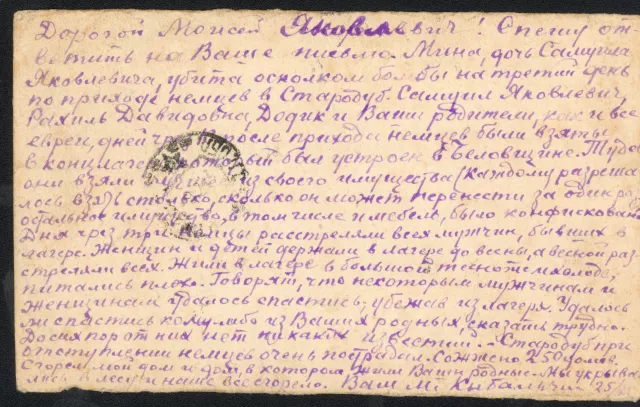 Дорогой Моисей Яковлевич! Спешу от-
ветить на Ваше письмо. Мина, дочь Самуила
Яковлевича, убита осколком бомбы на третий день
по приходе немцев в Стародуб. Самуил Яковлевич,
Рахиль Давидовна, Додик и Ваши родители, как и все
евреи, дней через после прихода немцев были взяты
в концлагерь, который был устроен в Беловщине. Туда
они взяли из своего имущества (каждому разреша
лось взять столько, сколько он может перенести за один раз
остальное имущество, в том числе и мебель, было конфисковано.
Дня чрез три немцы расстреляли всех мужчин, бывших в
лагере. Женщин и детей держали в лагере до весны, а весной рас
стреляли всех. Жили в лагере в большой тесноте и холоде,
питались плохо. Говорят, что некоторым мужчинам и
женщинам удалось спастись, убежав из лагеря. Удалось
ли спастись кому-либо из Ваших родных, сказать трудно.
До сих пор от них нет никаких известий. – Стародуб при
отступлении немцев очень пострадал. Сожжено 250 домов.
Сгорел мой дом и дом, в котором жили Ваши родные. Мы укрыва
лись в лесу и наше все сгорело. Ваш М. Кибальчич